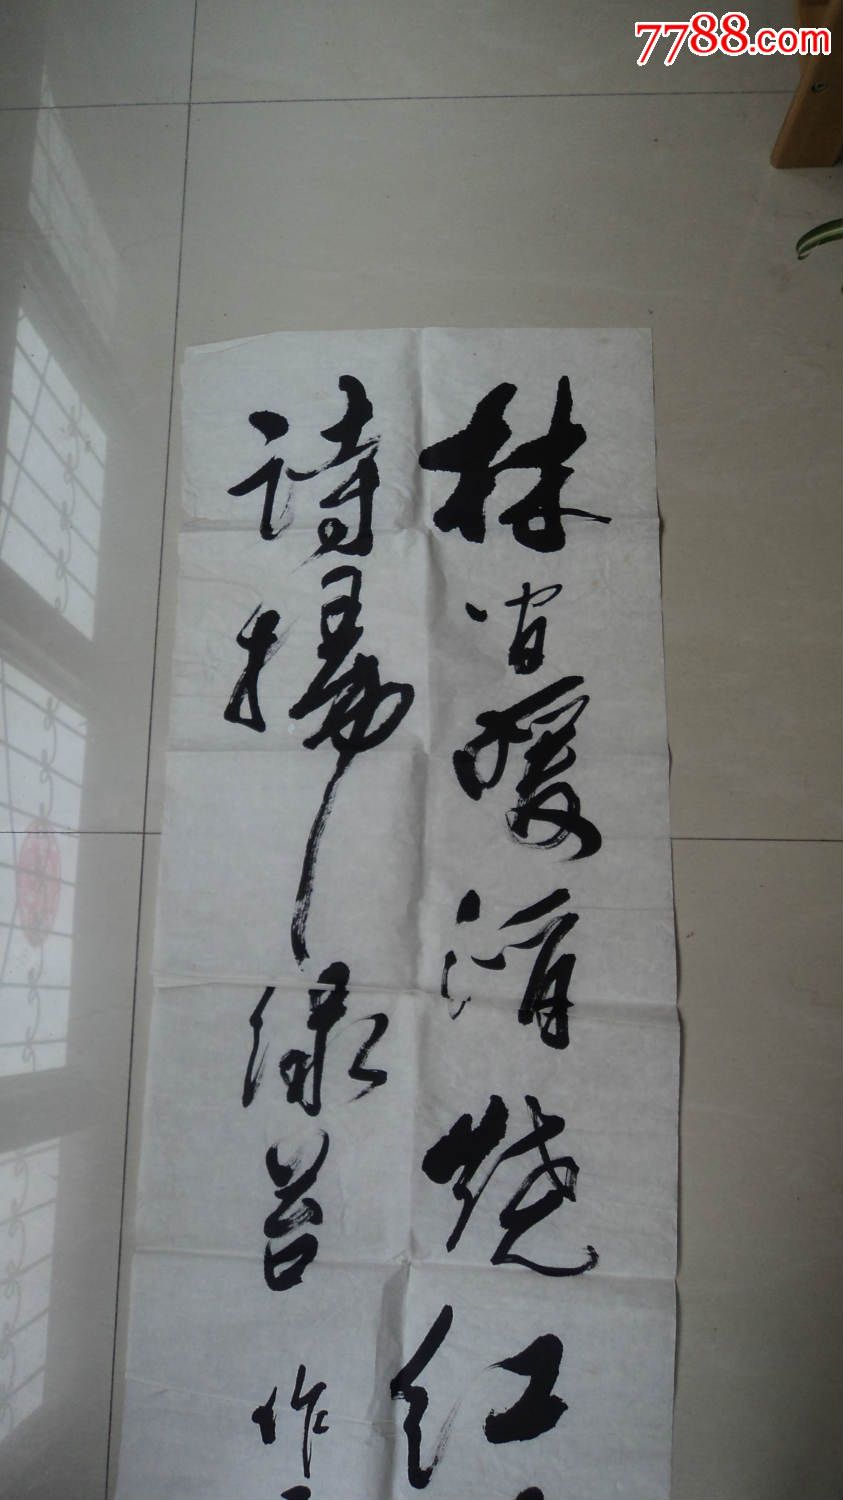 7788.com
林间暖酒烧红
诗掃绿苔 作